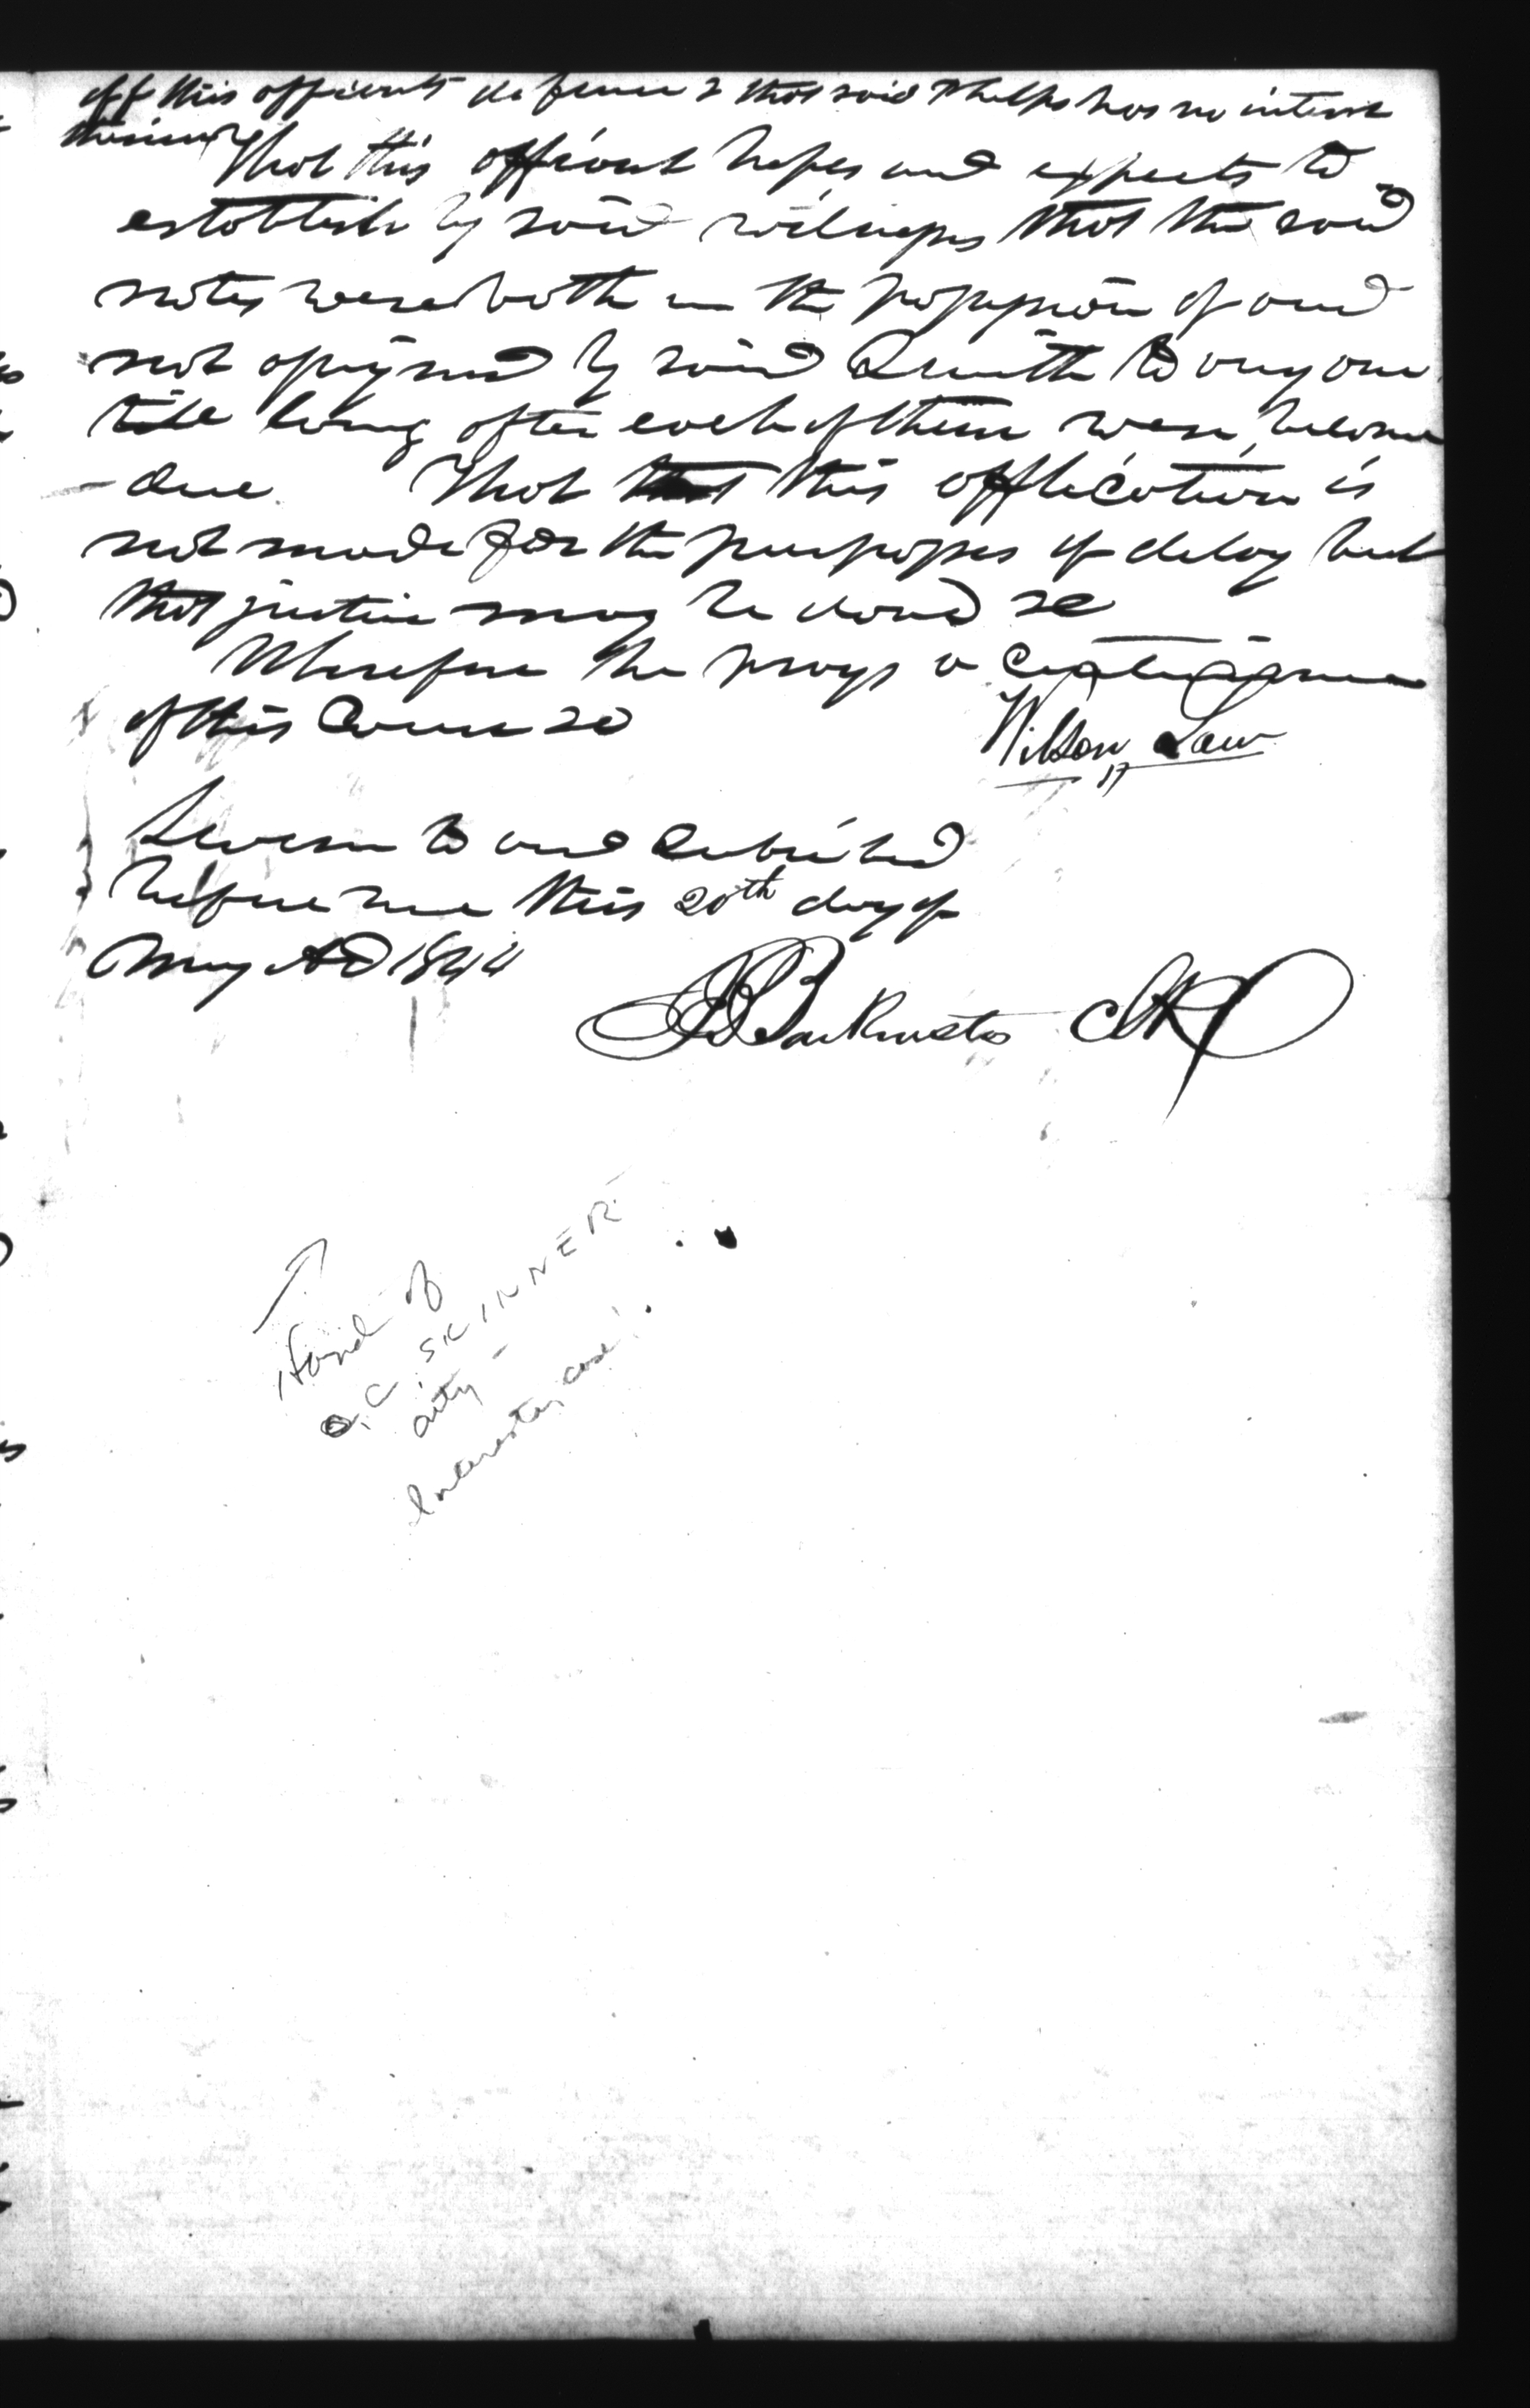 of this affiants defence & that said Phelps has no interest
therein
That this affiant hopes and expects to
establish by said witnesses that the said
notes were both in the possession of and
not assigned by said Smith to any one
till long after each of them were become
due. That this application is
not made for the purposes of delay but
that justice may be done &c
Wherefore he prays a continuance
of this Cause &c
Wilson Law
Sworn to and Subscribed
before me this 20th day of
May AD 1844
J B Backenstos Clk
Hand of
O.C. SKINNER
atty -
Interesting case!